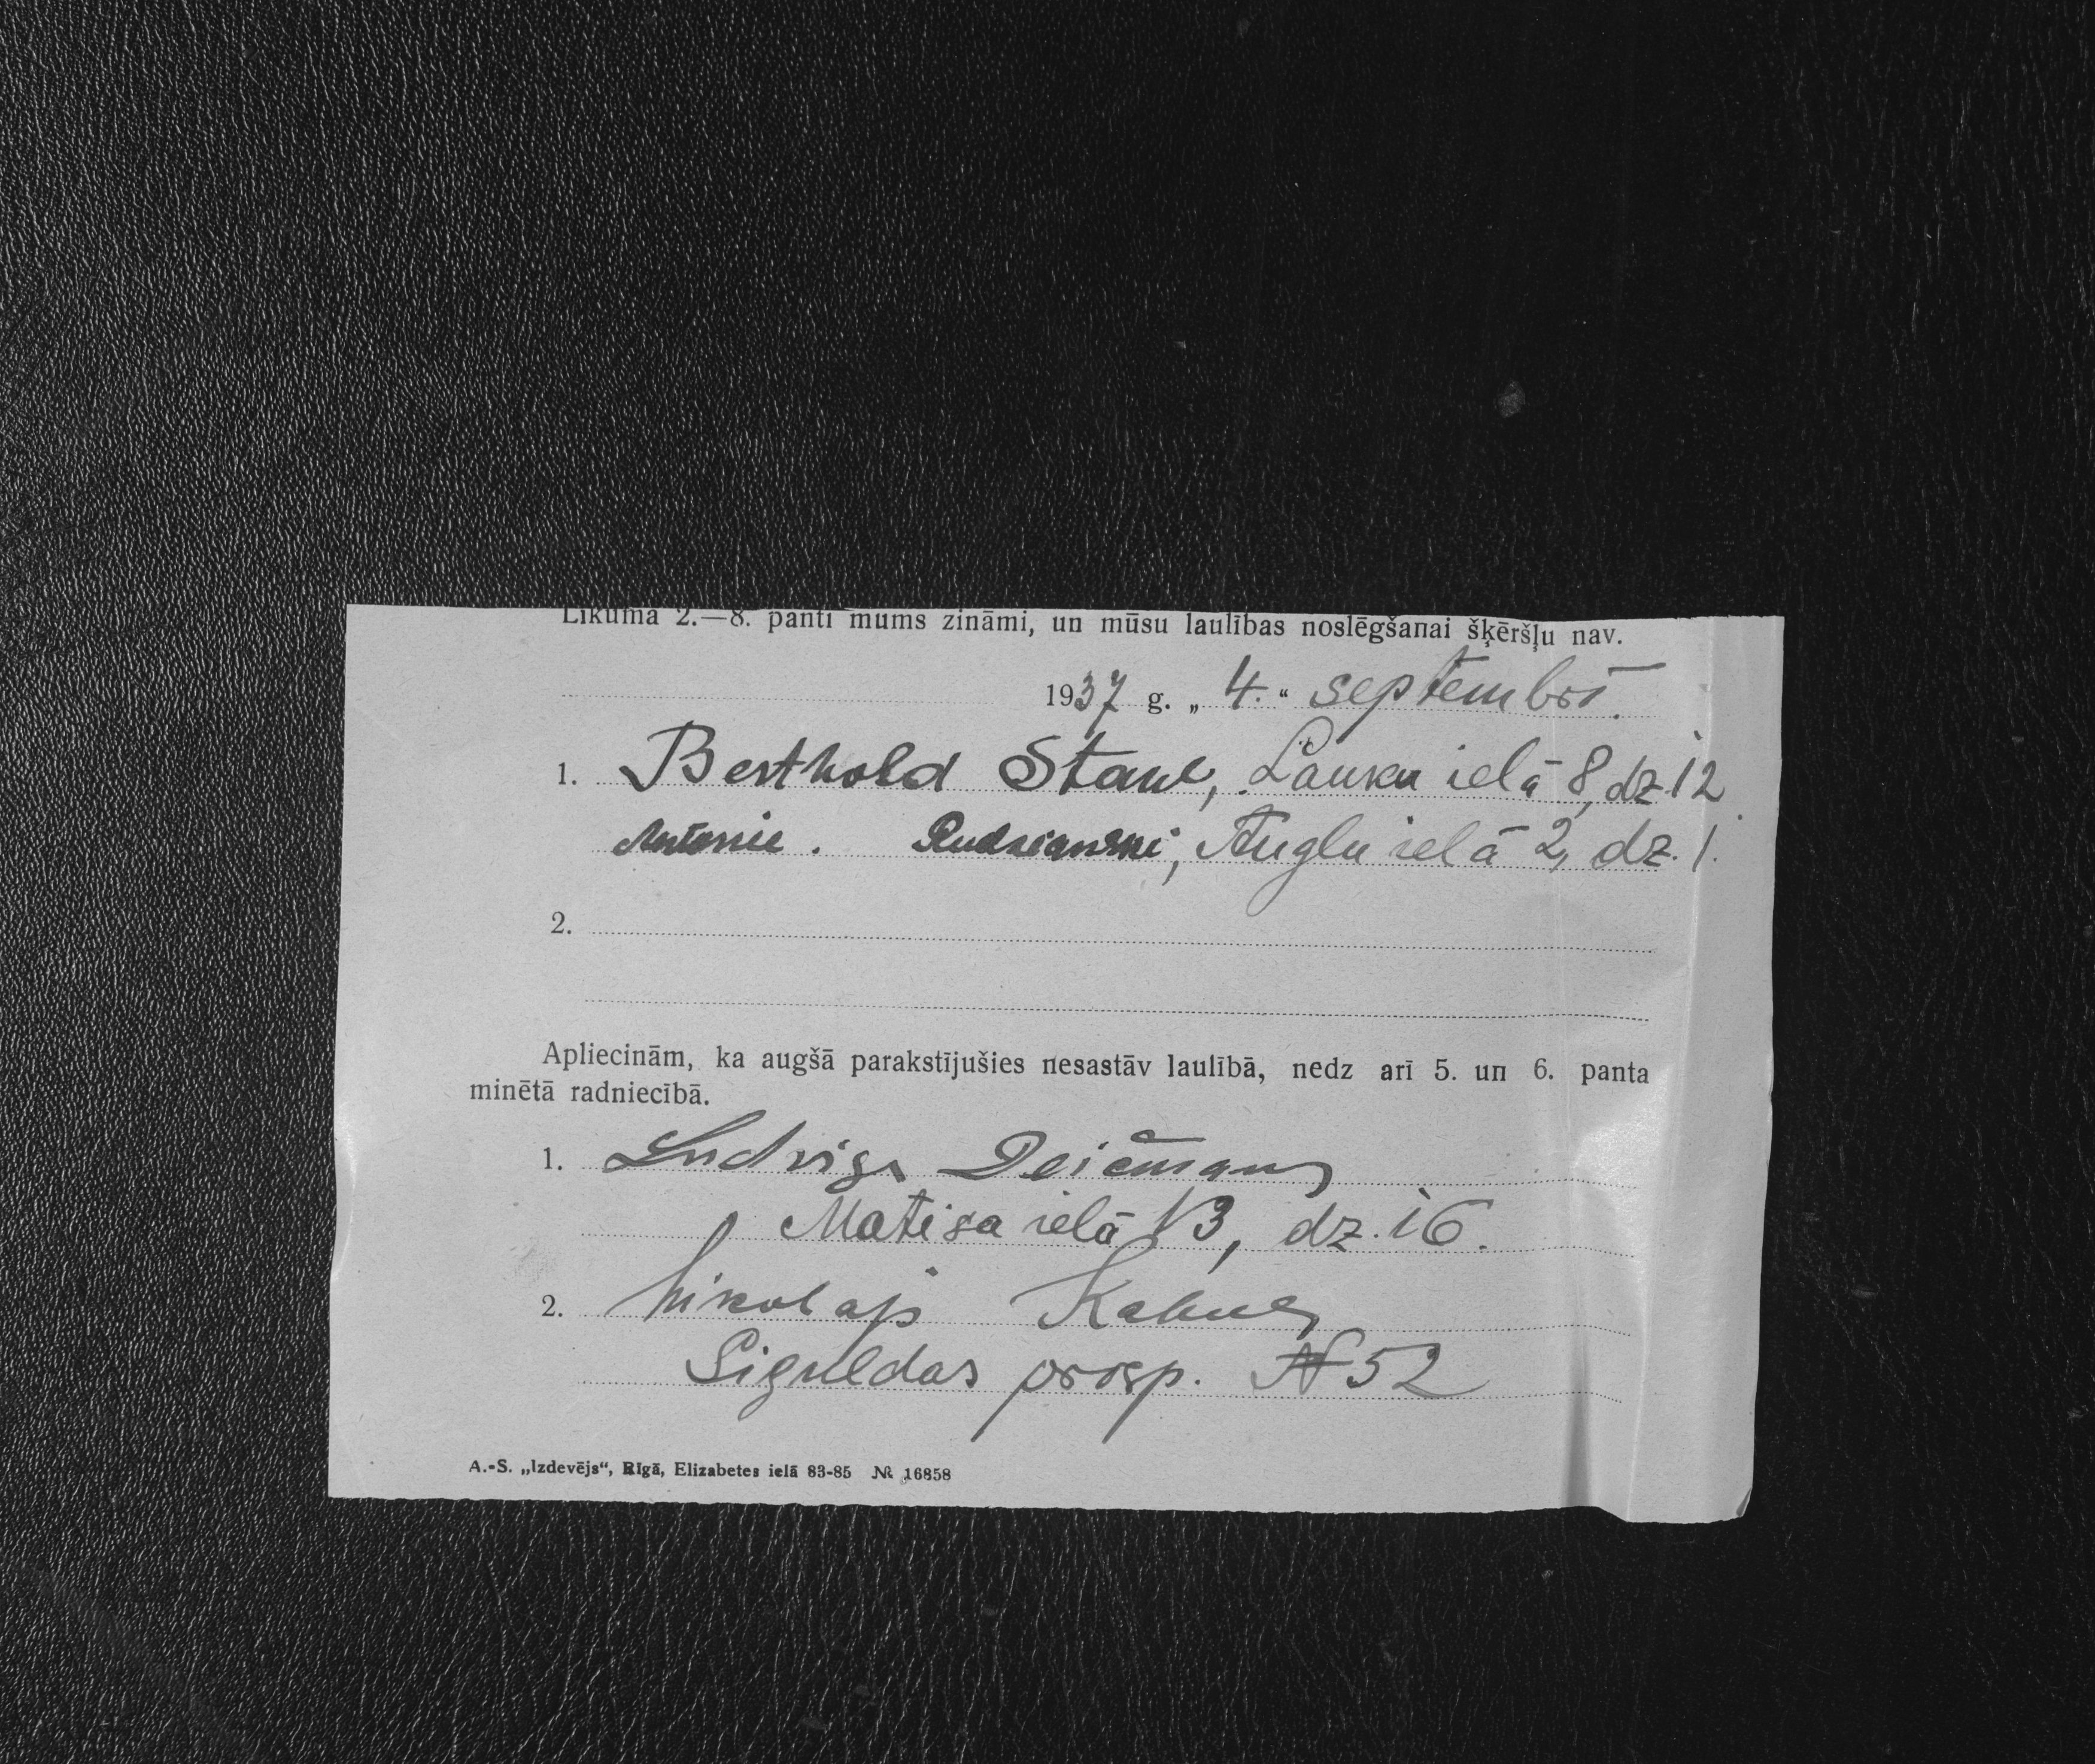 Likuma 2.—8. panti mums zināmi, un mūsu laulības noslēgšanai šķēršļu nav.
1937 g. „ 4. “ septembrī.
1. Berthold , Lauku ielā 8, dz. 12
Antonie . , Augļu ielā 2, dz. 1.
2.
Apliecinām, ka augšā parakstījušies nesastāv laulībā, nedz arī 5. un 6. panta
minētā radniecībā.
1. Ludvigs Deičmans
Matisa ielā 13, dz. 16.
2. Nikolajs
Siguldas prosp. № 52
A.-S. „Izdevējs“, Rīgā, Elizabetes ielā 83-85 № 16858